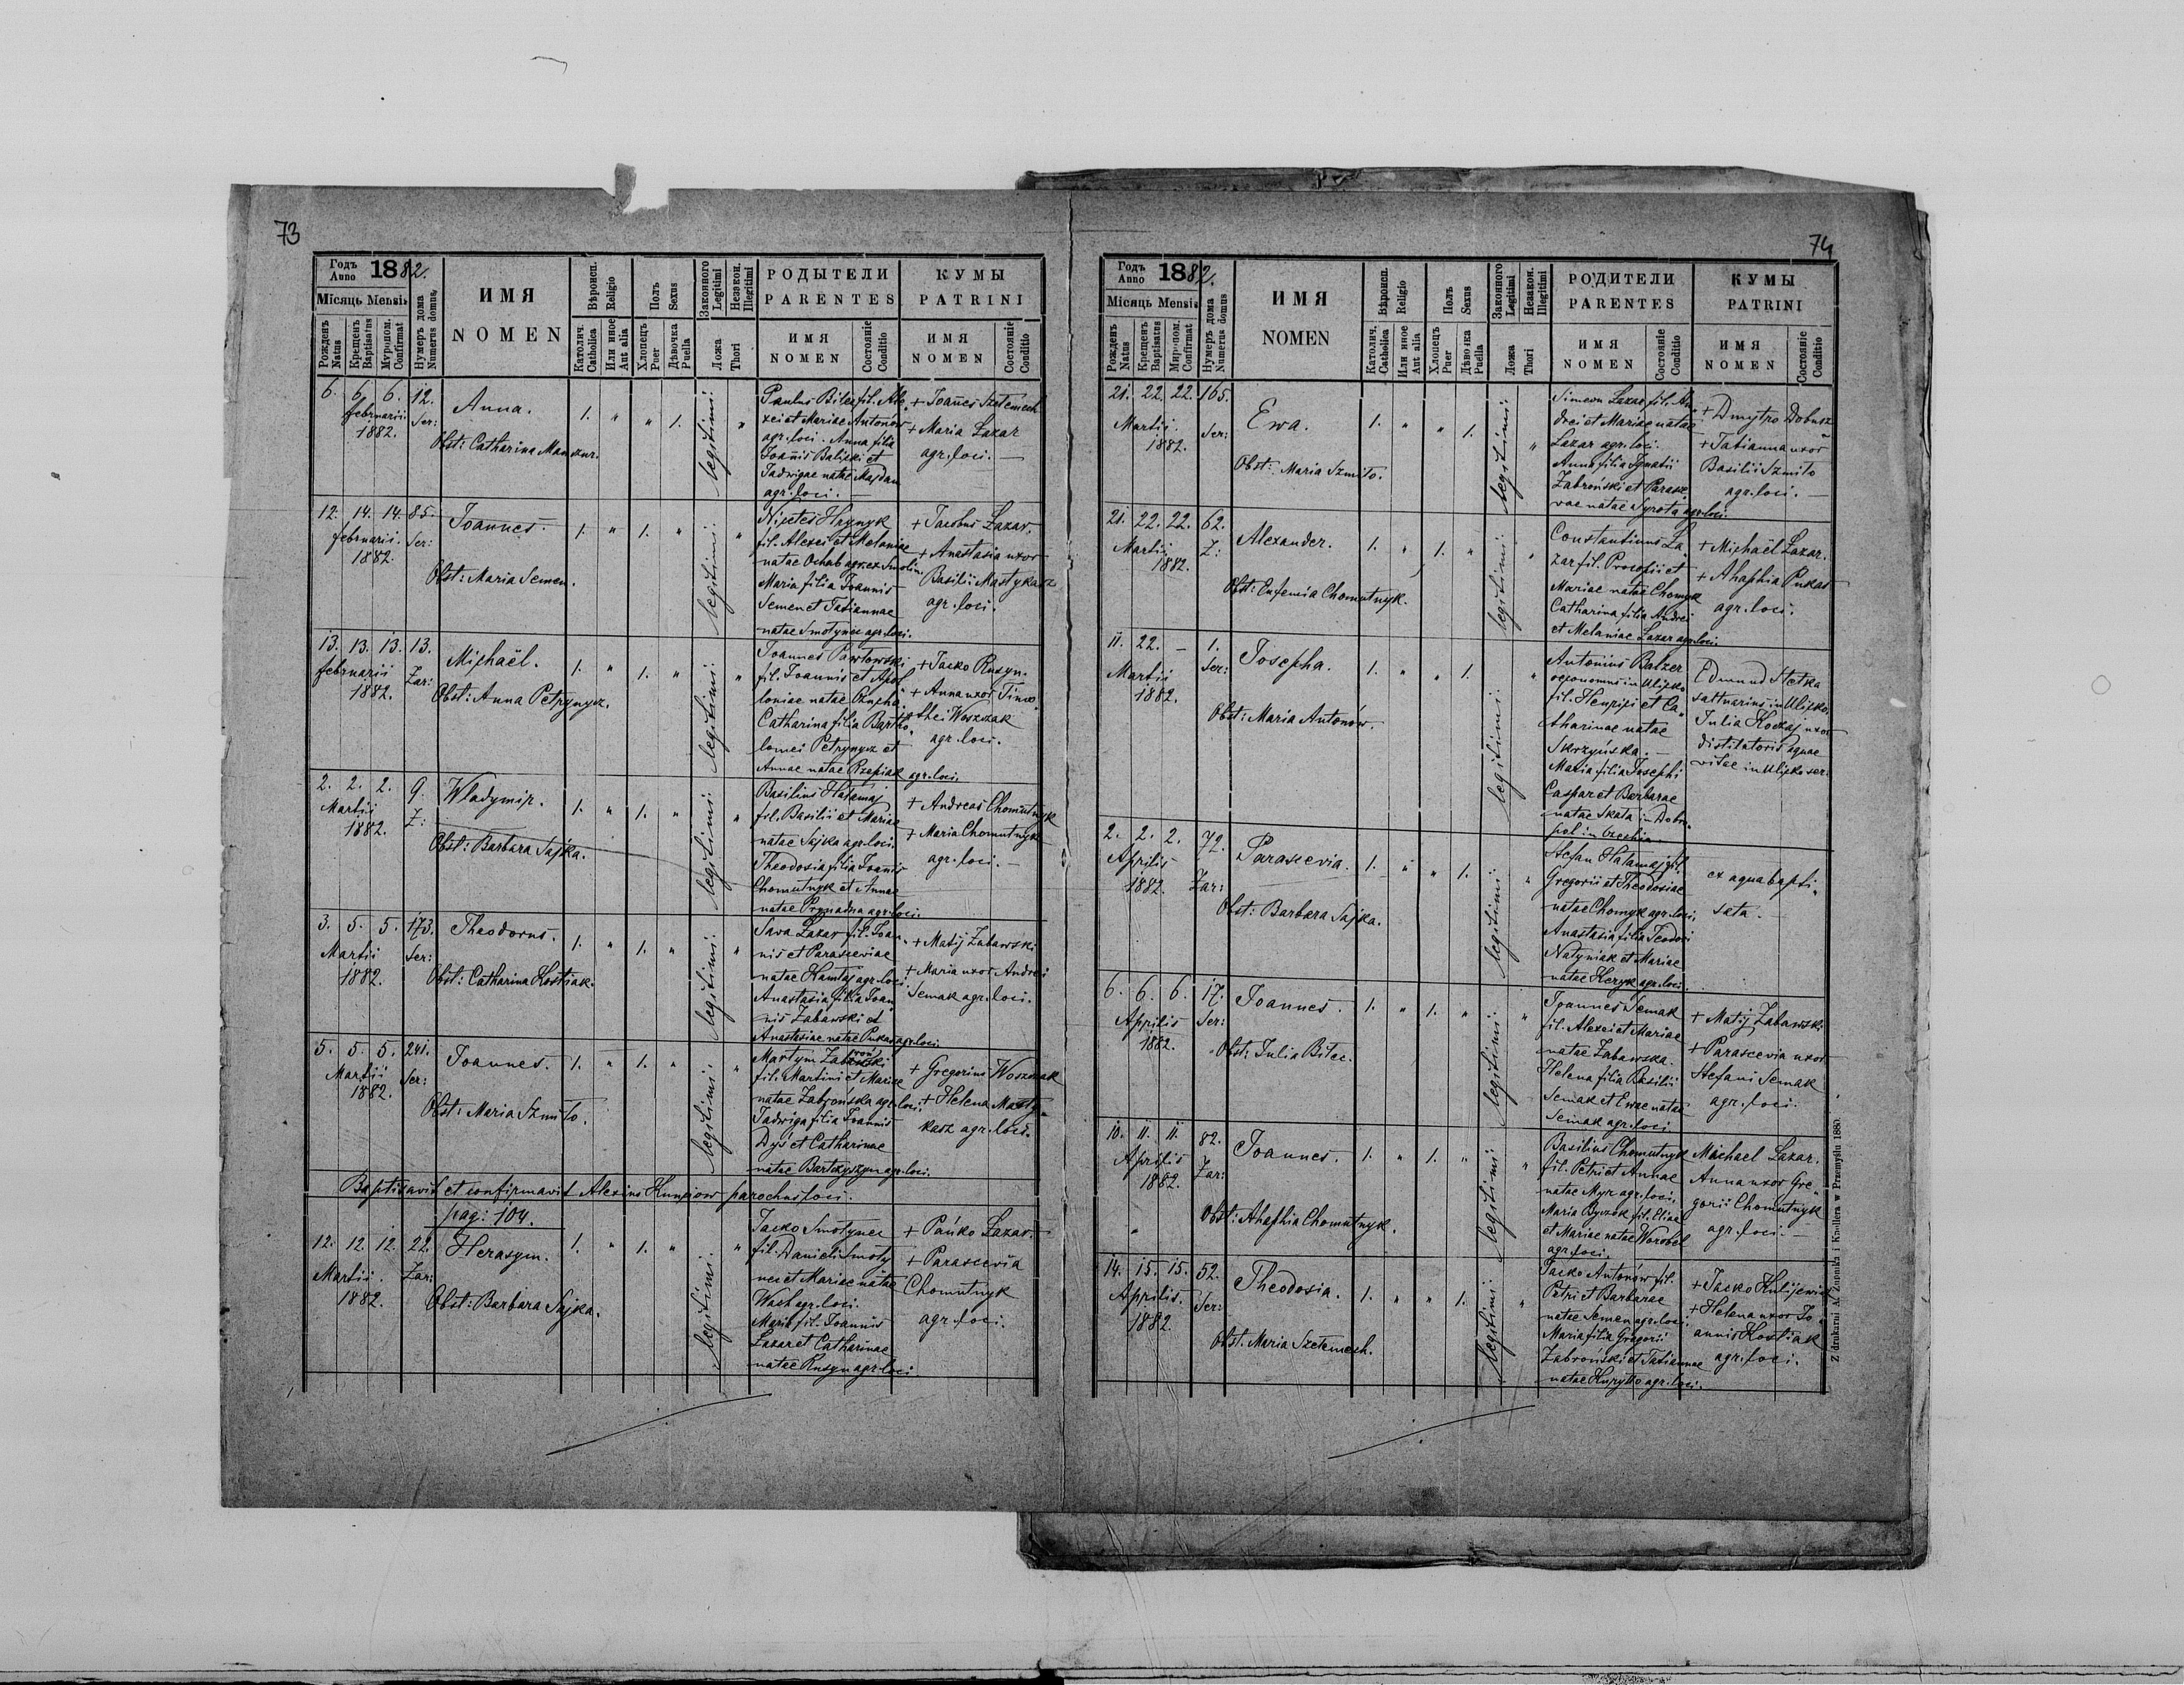 73
Годъ Anno 1882.
Місяць Mensis
Рожденъ Natus
Крещенъ Baptisatus
Мѵропом. Confirmat
Нумеръ дома Numerus domus
ИМЯ
NOMEN
Вѣроисп. Religio
Католич. Catholica
Или иное Aut alia
Полъ Sexus
Хлопецъ Puer
Дѣвочка Puella
Законного Legitimi
Незакон. Illegitimi
Ложа Thori
РОДЫТЕЛИ
PARENTES
ИМЯ NOMEN
Состояніе Conditio
КУМЫ
PATRINI
ИМЯ NOMEN
Состояніе Conditio
6. 6. 6. 12.
februarii Ser:
1882.
Anna.
Obst: Catharina
1. " " 1.
legitimi:
Paulus Bilec fil. Ale
xei et Mariae Antonów
agr. loci. Anna filia
Joannis Baliski et
Jadwigae natae Majdan
agr. loci.
+ Joannes Szetemech
+ Maria Lazar
agr. loci. —
12. 14. 14. 85.
februarii. Ser:
1882.
Joannes.
Obst: Maria Semen.
1. " 1. "
legitimi:
fil. Alexei et Melaniae
natae Ochab agr. ex Smolin.
Maria filia Joannis
Semen et Tatiannae
natae Smotynec agr. loci.
+ Jacobus Lazar.
+ Anastasia uxor
Basilii Mastykasz
agr. loci.
13. 13. 13. 13.
februarii Zar:
1882.
Michaël.
Obst: Anna Petrynycz.
1. " 1. "
legitimi:
Joannes Pawłowski
fil. Joannis et Apol
loniae natae
Catharina filia Bartho
lomei Petrynycz et
Annae natae Rzepiak agr. loci.
+ Jacko Rusyn.
+ Anna uxor Timo
thei Woszczak
agr. loci.
2. 2. 2. 9.
Martii Z:
1882.
Wladymir.
Obst: Barbara Sajka.
1. " 1. "
legitimi:
Basilius Hałamaj
fil. Basilii et Mariae
natae Sajka agr. loci.
Theodosia filia Joannis
Chomutnyk et Annae
natae Prynadna agr. loci.
+ Andreas Chomutnyk
+ Maria Chomutnyk
agr. loci. —
3. 5. 5. 173.
Martii Ser:
1882.
Theodorus.
Obst: Catharina Kostiak.
1. " 1. "
legitimi:
Sava Lazar fil. Joan
nis et Parasceviae
natae Hamtaj agr. loci.
Anastasia filia Joan
nis Zabawski et
Anastasiae natae Pukas agr. loci.
+ Matij Zabawski
+ Maria uxor Andrei
Semak agr. loci.
5. 5. 5. 241.
Martii Ser:
1882.
Joannes.
Obst: Maria Szmito.
1. " 1. "
legitimi:
Martym
fil. Martini et Mariae
natae Zabronska agr. loci.
Jadwiga filia Joannis
Dyś et Catharinae
natae Bartkyszyn agr. loci.
+ Gregorius Woszczak
+ Helena Masty
kasz agr. loci.
Baptisavit et confirmavit Alexius parochus loci.
pag: 104.
12. 12. 12. 22.
Martii. Zar:
1882.
Herasym.
Obst: Barbara Sajka.
1. " 1. "
legitimi:
Jacko Smotynec
fil. Danieli Smoty
nec et Mariae natae
Wach agr. loci.
Maria fil. Joannis
Lazar et Catharinae
natae Rusyn agr. loci
+ Pańko Lazar.
+ Parascevia
Chomutnyk
agr. loci.
74
Годъ Anno 1882.
Місяць Mensis
Рожденъ Natus
Крещенъ Baptisatus
Миропом. Confirmat
Нумеръ дома Numerus domus
ИМЯ
NOMEN
Вѣроисп. Religio
Католич. Catholica
Или иное Aut alia
Полъ Sexus
Хлопецъ Puer
Дѣвочка Puella
Законного Legitimi
Незакон. Illegitimi
Ложа Thori
РОДИТЕЛИ
PARENTES
ИМЯ NOMEN
Состояніе Conditio
КУМЫ
PATRINI
ИМЯ NOMEN
Состояніе Conditio
21. 22. 22. 165.
Martii. Ser:
1882.
Ewa.
Obst: Maria Szmito.
1. " " 1.
legitimi:
Simeon Lazar fil. An
drei et Mariae natae
Lazar agr. loci.
Anna filia Ignatii
Zabroński et Parasce
vae natae Syrota agr. loci.
+ Dmytro Dobusz
+ Tatianna uxor
Basilii Szmito
agr. loci. —
21. 22. 22. 62.
Martii Z:
1882.
Alexander.
Obst: Eufemia Chomutnyk.
1. " 1. "
legitimi:
Constantinus La
zar fil. Procopii et
Mariae natae Chomyk
Catharina filia Andrei
et Melaniae Lazar agr. loci.
+ Michaël Lazar.
+ Ahaphia Pukas
agr. loci.
11. 22. — 1.
Martii Ser:
1882.
Josepha.
Obst: Maria Antonów.
1. " " 1.
legitimi:
Antonius Balzer
oeconomus in Ulicko
fil. Henrici et Ca
tharinae natae
Skrzyńska. —
Maria filia Josephi
Caspar et Barbarae
natae Skala in Dobro
pol in Czechia
Edmund Stetka
saltuarius in Ulicko.
Julia Kockaj uxor
distilatoris aquae
vitae in Ulicko ser:
2. 2. 2. 72.
Aprilis Zar:
1882.
Parascevia.
Obst: Barbara Sajka.
1. " " 1.
legitimi:
Stefan Hałamaj fil.
Gregorii et Theodosiae
natae Chomyk agr. loci.
Anastasia filia Teodori
Natyniak et Mariae
natae Heryk agr. loci.
ex aqua bapti
sata. —
6. 6. 6. 17.
Aprilis Ser:
1882.
Joannes.
Obst: Julia Bilec.
1. " 1. "
legitimi:
Joannes Semak
fil. Alexei et Mariae
natae Zabawska.
Helena filia Basilii
Semak et Ewae natae
Semak agr. loci
+ Matij Zabawski
+ Parascevia uxor
Stefani Semak
agr. loci.
10. 11. 11. 82.
Aprilis Zar:
1882.
Joannes.
Obst: Ahaphia Chomutnyk.
1. " 1. "
legitimi:
Basilius Chomutnyk
fil. Petri et Annae
natae Myr agr. loci.
Maria Byczok fil. Eliae
et Mariae natae Worobel
agr. loci.
Michael Lazar.
Anna uxor Gre
gorii Chomutnyk
agr. loci. —
14. 15. 15. 52.
Aprilis. Ser:
1882.
Theodosia.
Obst. Maria Szetemech.
1. " " 1.
legitimi:
Jacko Antonów fil.
Petri et Barbarae
natae Semen agr. loci.
Maria filia Gregorii
Zabroński et Tatiannae
natae Kuryłło agr. loci.
+ Jacko
+ Helena uxor Jo
annis Kostiak
agr. loci.
Z drukarni A. Żupnika i Knollera w Przemyślu 1880.